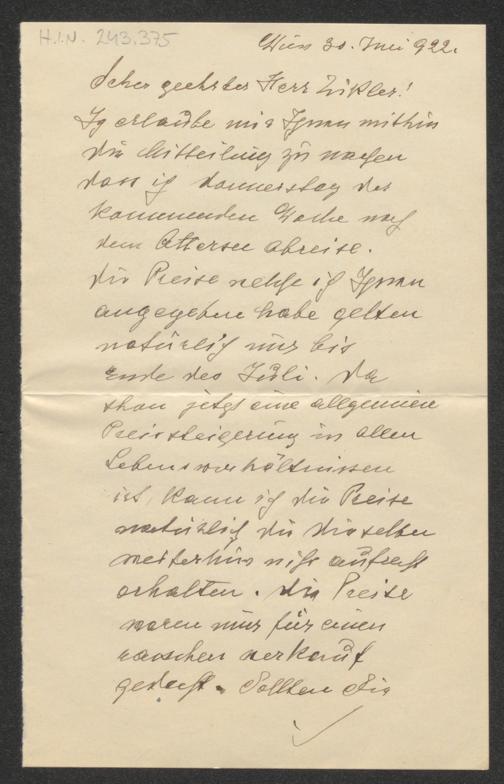 H.I.N. 243.375
Wien 30. Juni 922.
Sehr geehrter Herr Zikler!
Ich erlaube mir Ihnen mithin
die Mitteilung zu machen
dass ich Donnerstag der
kommenden Woche nach
dem Attersee abreise.
Die Preise welche ich Ihnen
angegeben habe gelten
natürlich nur bis
Ende des Juli. Da
schon jetzt eine allgemeine
Preissteigerung in allen
Lebensverhältnissen
ist, kann ich die Preise
natürlich die dieselben
weiterhin nicht aufrecht
erhalten. Die Preise
waren nur für einen
raschen verkauf
gedacht. Sollten Sie